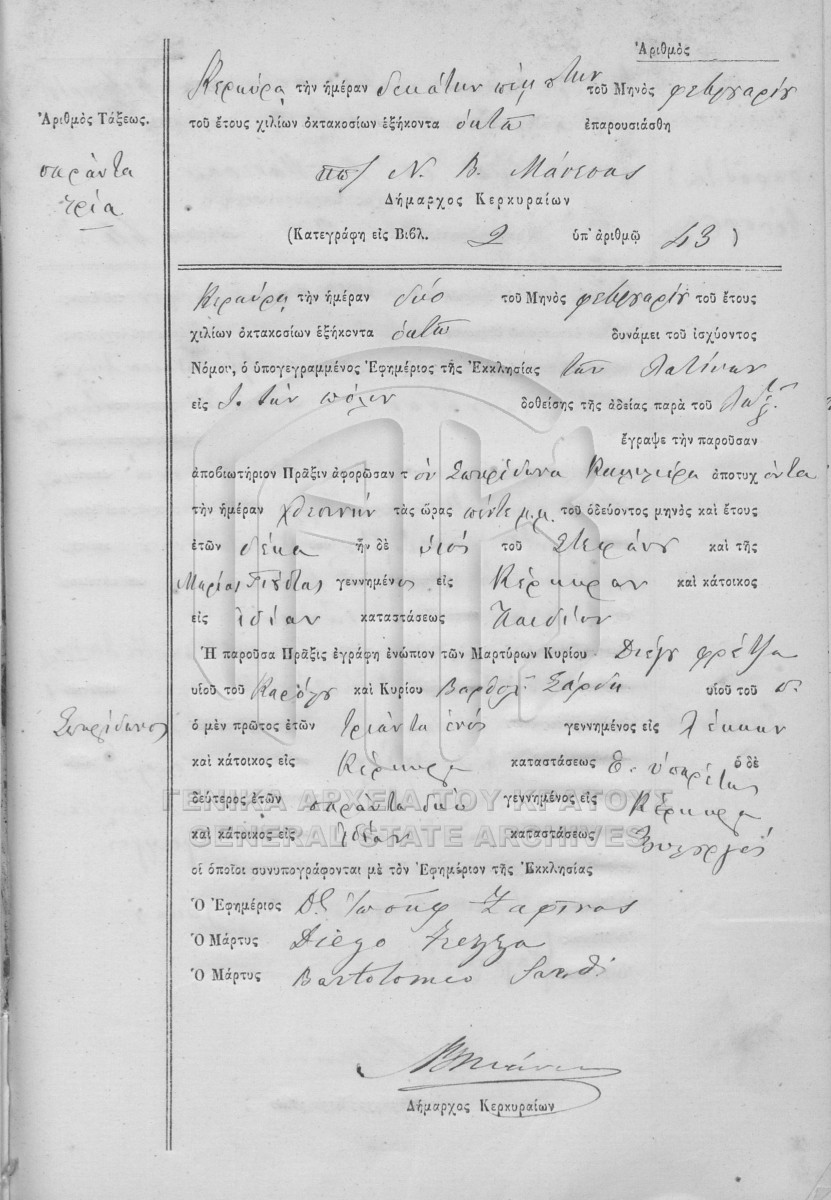 Ἀριθμὸς
Κερκύρᾳ τὴν ἡμέραν δεκάτην πέμπτην τοῦ Μηνὸς φεβρουαρίου
Ἀριθμὸς Τάξεως.
τοῦ ἔτους χιλίων ὀκτακοσίων ἑξήκοντα ὀκτὼ ἐπαρουσιάσθη
σαράντα
τρία
Ν. Β. Μάνεσας
Δήμαρχος Κερκυραίων
(Κατεγράφη εἰς Βιβλ. 2 ὑπ᾽ ἀριθμῷ 43)
Κερκύρᾳ τὴν ἡμέραν δύο τοῦ Μηνὸς φεβρουαρίου τοῦ ἔτους
χιλίων ὀκτακοσίων ἑξήκοντα ὀκτὼ δυνάμει τοῦ ἰσχύοντος
Νόμου, ὁ ὑπογεγραμμένος Ἐφημέριος τῆς Ἐκκλησίας τῶν Λατίνων
εἰς τὴν πόλιν δοθείσης τῆς ἀδείας παρὰ τοῦ
ἔγραψε τὴν παροῦσαν
ἀποβιωτήριον Πρᾶξιν ἀφορῶσαν τὸν Σπυρίδωνα Καμιλιέρα ἀποτυχόντα
τὴν ἡμέραν χθεσινὴν τὰς ὥρας πέντε μ.μ. τοῦ ὁδεύοντος μηνὸς καὶ ἔτους
ἐτῶν δέκα ἦν δὲ υἱὸς τοῦ Στεφάνου καὶ τῆς
Μαρίας γεννημένος εἰς Κέρκυραν καὶ κάτοικος
εἰς ἰδίαν καταστάσεως παιδίον
Ἡ παροῦσα Πρᾶξις ἐγράφη ἐνώπιον τῶν Μαρτύρων Κυρίου Διέγου Φρέτζα
υἱοῦ τοῦ Καρόλου καὶ Κυρίου Βαρθολ. Σάρδη υἱοῦ τοῦ π.
Σπυρίδωνος
ὁ μὲν πρῶτος ἐτῶν τριάντα ἑνὸς γεννημένος εἰς Λέκκαν
καὶ κάτοικος εἰς Κέρκυρα καταστάσεως ὑπηρέτης ὁ δὲ
δεύτερος ἐτῶν σαράντα δύω γεννημένος εἰς Κέρκυρα
καὶ κάτοικος εἰς ἰδίαν καταστάσεως ξυλουργὸς
οἱ ὁποῖοι συνυπογράφονται μὲ τὸν Ἐφημέριον τῆς Ἐκκλησίας
Ὁ Ἐφημέριος Δ. Ἰωσὴφ Ζαφίνος
Ὁ Μάρτυς Diego Frezza
Ὁ Μάρτυς Bartolomeo Sardi
Δήμαρχος Κερκυραίων
ΓΕΝΙΚΑ ΑΡΧΕΙΑ ΤΟΥ ΚΡΑΤΟΥΣ
GENERAL STATE ARCHIVES